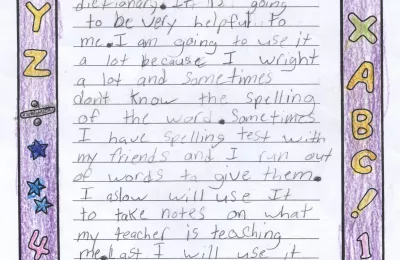 dictionary. It is going
to be very helpful to
me. I am going to use it
a lot because I wright
a lot and sometimes
don't know the spelling
of the word. Sometimes
I have spelling test with
my friends and I run out
of words to give them.
I aslow will use It
to take notes on what
my teacher is teaching
me. Last I will use it
Y
Z
÷
4
X
A
B
C
!
1